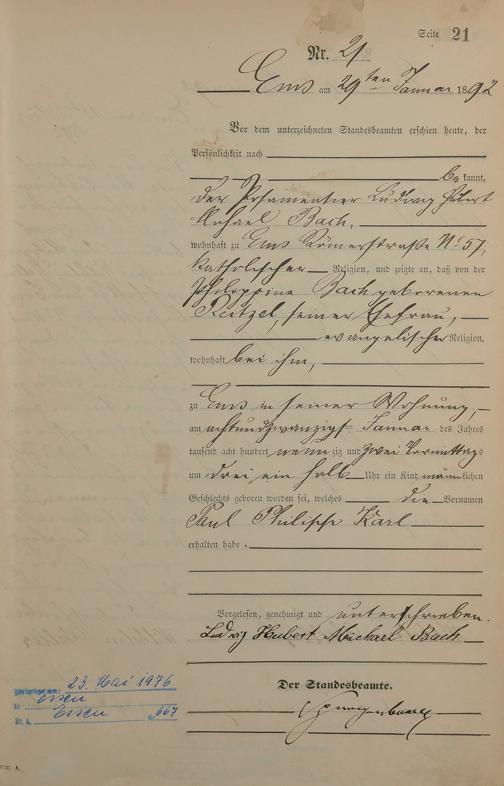 Seite 21
Nr. 21
Ems am 29ten Januar 1892
Vor dem unterzeichneten Standesbeamten erschien heute, der
Persönlichkeit nach
be kannt,
der Posamentier Ludwig Hubert
Michael Bach,
wohnhaft zu Ems Römerstraße No 57,
katholischer Religion, und zeigte an, daß von der
Philippine Bach geborenen
Reitzel, seiner Ehefrau,
evangelischer Religion,
wohnhaft bei ihm,
zu Ems in seiner Wohnung,
am achtundzwanzigsten Januar des Jahres
tausend acht hundert neun zig und zwei Vormittags
um drei ein halb Uhr ein Kind männlichen
Geschlechts geboren worden sei, welches die Vornamen
Paul Philipp Karl
erhalten habe.
Vorgelesen, genehmigt und unterschrieben.
Ludwig Hubert Michael Bach
Der Standesbeamte.
gestorben am: 23. Mai 1976
in Essen
St. A. Essen Nr. 667